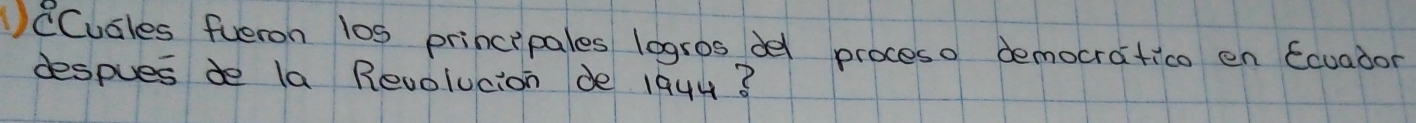 1) ¿Cuáles fueron los principales logros del proceso democrático en Ecuador
después de la Revolución de 1944?